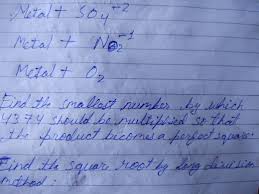 Metal + SO4 -2
Metal + NO2 -1
Metal + O2
Find the smallest number by which
4374 should be multiplied so that
the product becomes a perfect square.
Find the square root by long division
method: